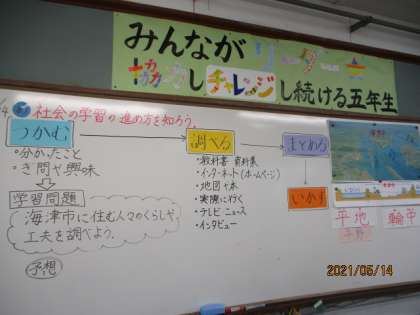 みんながリーダー
協力しチャレンジし続ける五年生
社会の学習の進め方を知ろう。
つかむ
・分かったこと
・ぎ問や興味
学習問題
海津市に住む人々のくらしや、
工夫を調べよう。
予想
調べる
・教科書 資料集
・インターネット(ホームページ)
・地図や本
・実際に行く
・テレビ ニュース
・インタビュー
まとめる
いかす
平地
輪中
2021/05/14